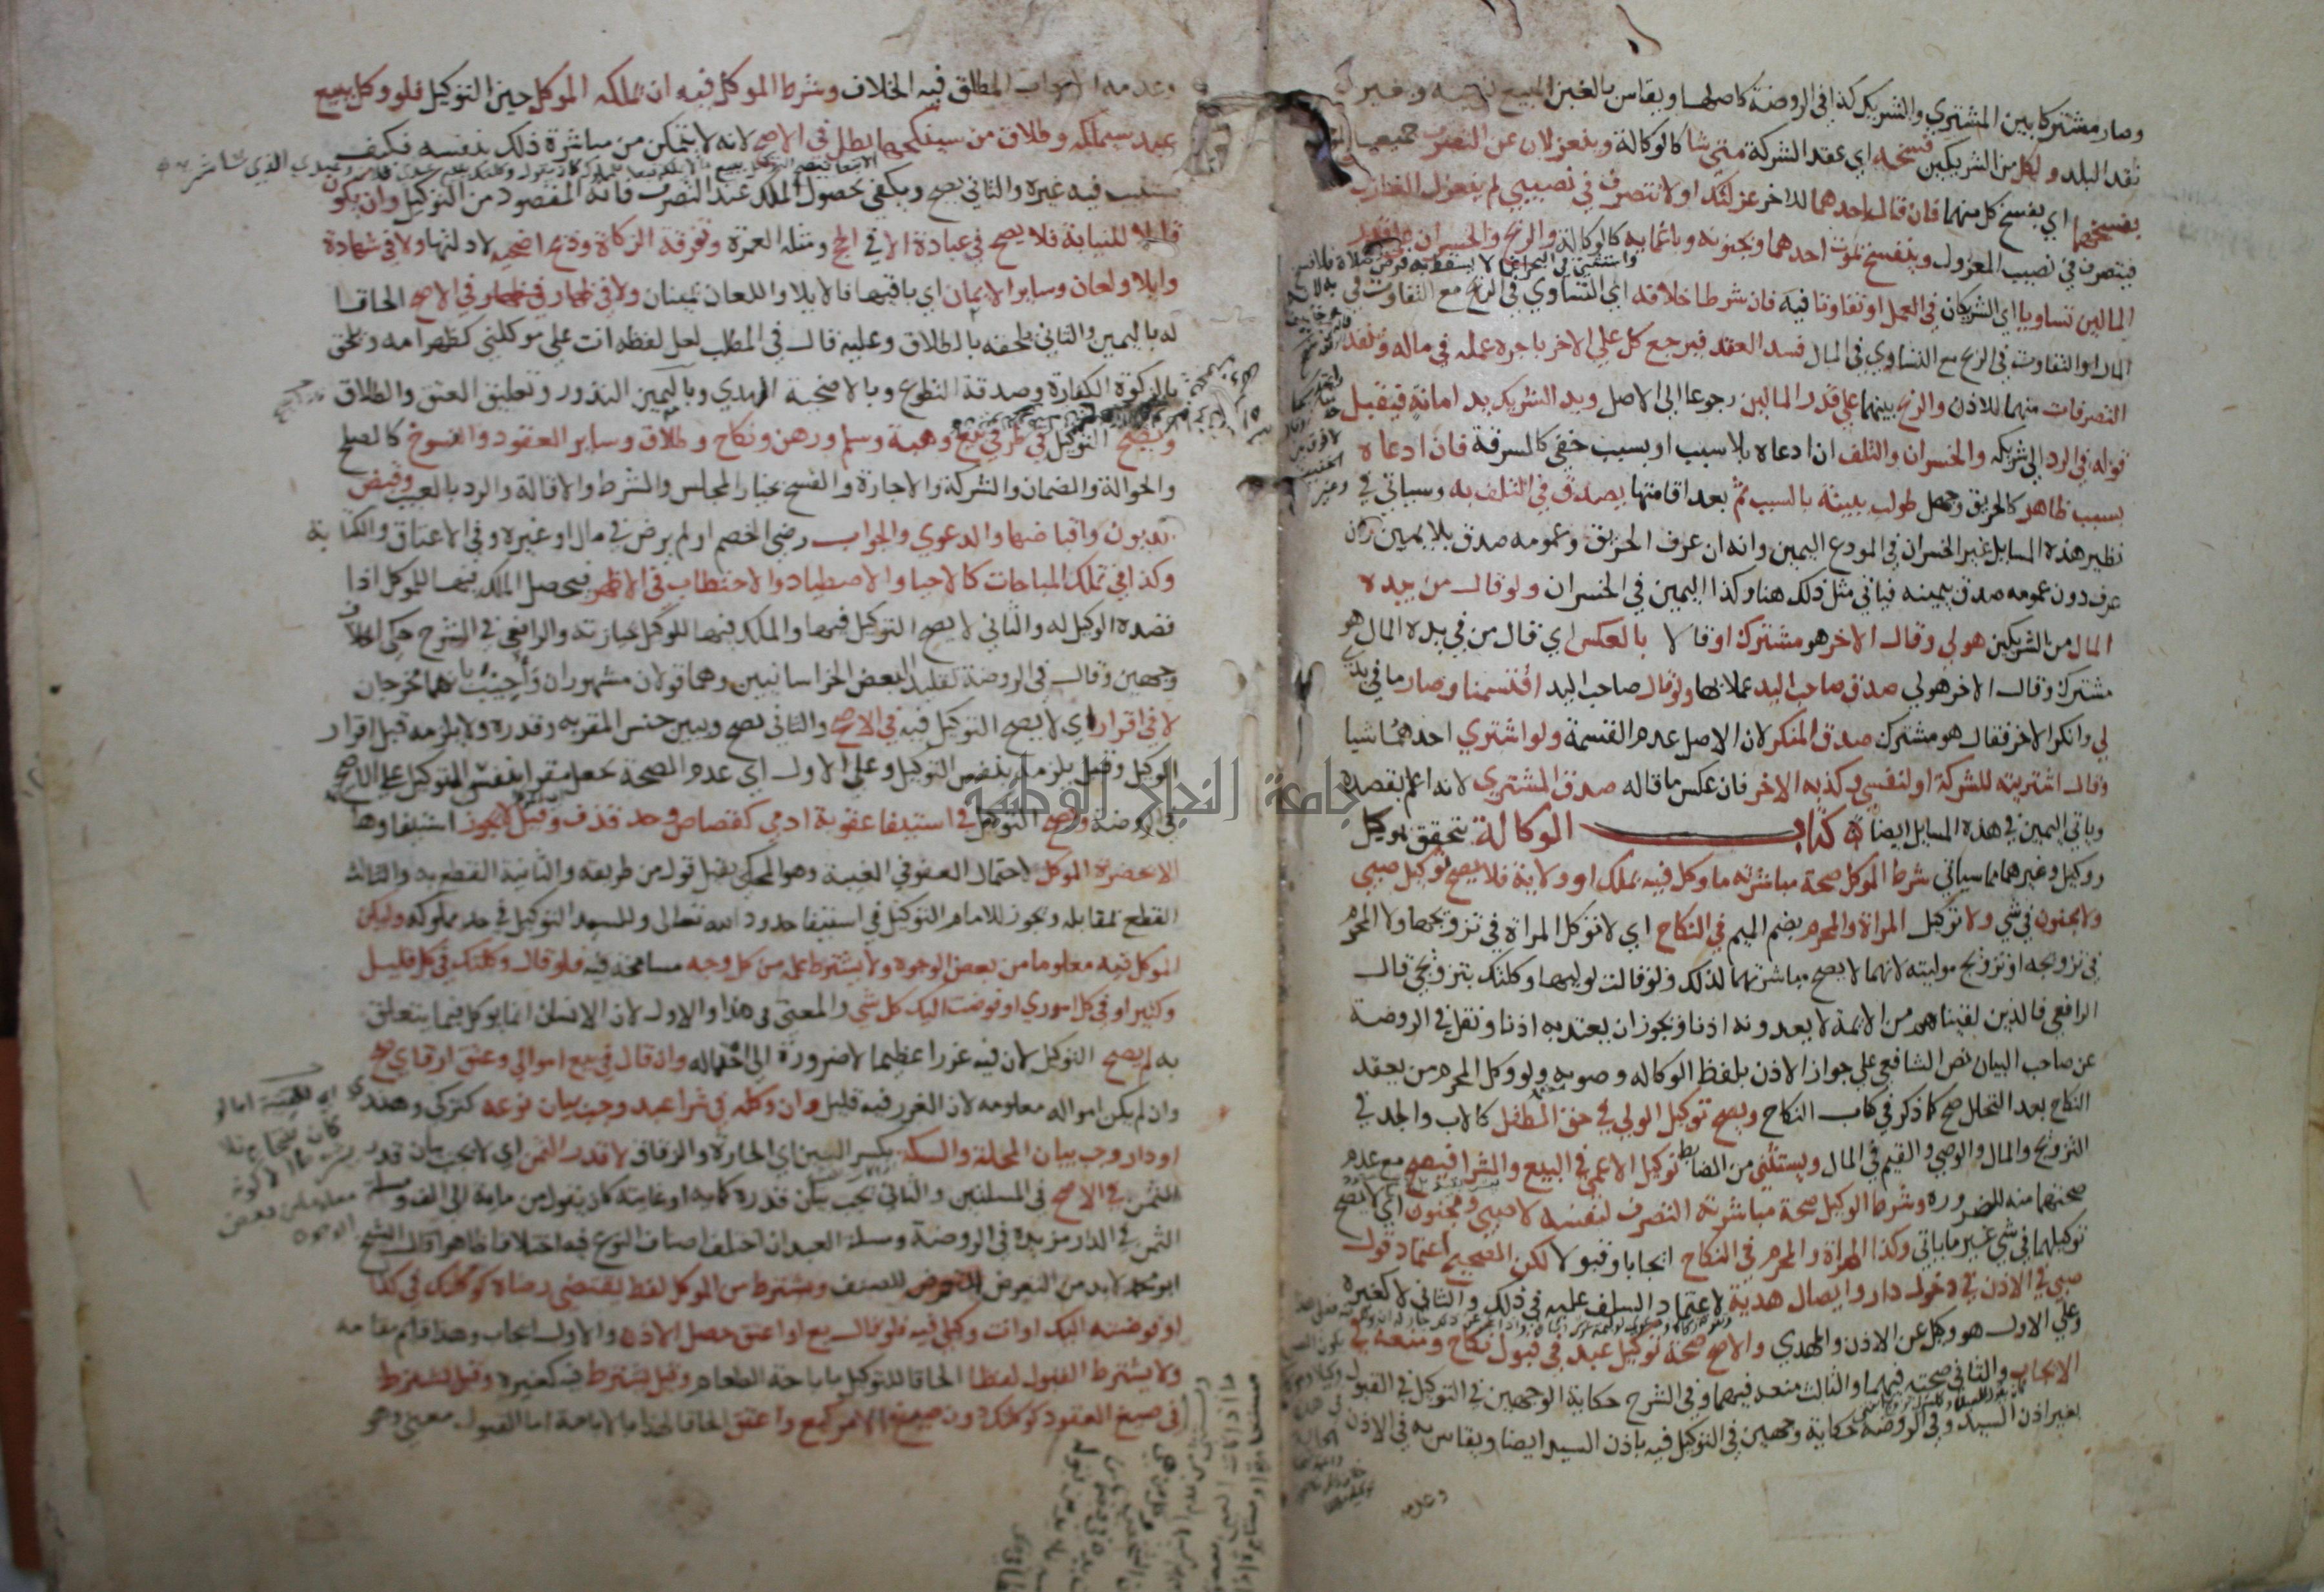 وصار مشتركا بين المشتري والشريك كذا في الروضة كاصلها ويقاس بالغبن المبيع نسيه وغير
نقد البلد ولكل من الشريكين فسخه اي عقد الشركة متى شا كالوكالة وينعزلان عن التصرف جميعا
بفسخهما اي بفسخ كل منهما فان قال احدهما للاخر عزلتك او لا تتصرف في نصيبي لم ينعزل العازل
فيتصرف في نصيب المعزول وينفسخ بموت احدهما وبجنونه وباغمايه كالوكالة والربح والخسران على قدر
واستثنى في البحر اغما لا يسقط به فرض صلاة
المالين تساويا اي الشريكان في العمل او تفاوتا فيه فان شرطا خلافه اي التساوي في الربح مع التفاوت في
المال او التفاوت في الربح مع التساوي في المال فسد العقد فيرجع كل على الاخر باجرة عمله في ماله وتنفذ
التصرفات منهما للاذن والربح بينهما على قدر المالين رجوعا الى الاصل ويد الشريك يد امانة فيقبل
قوله في الرد الى شريكه والخسران والتلف ان ادعاه بلا سبب او بسبب خفي كالسرقة فان ادعاه
بسبب ظاهر كالحريق وجهل طولب ببينة بالسبب ثم بعد اقامتها يصدق في التلف به وسياتي في
نظير هذه المسايل غير الخسران في المودع اليمين وانه ان عرف الحريق وعمومه صدق بلا يمين وان
عرف دون عمومه صدق بيمينه فياتي مثل ذلك هنا وكذا اليمين في الخسران ولو قال من بيده
المال من الشريكين هو لي وقال الاخر هو مشترك او قالا بالعكس اي قال من في يده المال هو
مشترك وقال الاخر هو لي صدق صاحب اليد عملا بها ولو قال صاحب اليد اقتسمنا وصار ما في يدي
لي وانكر الاخر فقال هو مشترك صدق المنكر لان الاصل عدم القسمة ولو اشترى احدهما شيا
وقال اشتريته للشركة او لنفسي وكذبه الاخر فان عكس ما قاله صدق المشتري لانه اعلم بقصده
وياتي اليمين في هذه المسايل ايضا كتاب الوكالة تتحقق بموكل
ووكيل وغيرهما مما سياتي شرط الموكل صحة مباشرته ما وكل فيه بملك او ولاية فلا يصح توكيل صبي
ولا مجنون في شي ولا توكيل المراة والمحرم بضم الميم في النكاح اي لا توكل المراة في تزويجها ولا المحرم
في تزويجه او تزويج موليته لانهما لا يصح مباشرتهما لذلك ولو قالت لوليها وكلتك بتزويجي قال
الرافعي فالذين لقيناهم من الايمة لا يعدونه اذنا ويجوز ان يعتد به اذنا ونقل في الروضة
عن صاحب البيان نص الشافعي على جواز الاذن بلفظ الوكاله وصوبه ولو وكل المحرم من يعقد
النكاح بعد التحلل صح كما ذكر في كتاب النكاح ويصح توكيل الولي في حق الطفل كالاب والجد في
التزويج والمال والوصي والقيم في المال ويستثنى من الضابط توكيل الاعمى في البيع والشرا فيصح مع عدم
صحتهما منه للضرورة وشرط الوكيل صحة مباشرته التصرف لنفسه لا صبي ومجنون اي لا يصح
توكيلهما في شي غير ما ياتي وكذا المراة والمحرم في النكاح ايجابا وقبولا لكن الصحيح اعتماد قول
صبي في الاذن في دخول دار وايصال هدية لاعتماد السلف عليه في ذلك والثاني لا كغيره
وعلى الاول هو وكيل عن الاذن والمهدي والاصح صحة توكيل عبد في قبول نكاح ومنعه في
الايجاب والثاني صحته فيهما والثالث منعه فيهما وفي الشرح حكاية الوجهين في التوكيل في القبول
بغير اذن السيد وفي الروضة حكاية وجهين في التوكيل فيه باذن السيد ايضا ويقاس به في الاذن
وعدمه
وعدمه المطلق فيه الخلاف وشرط الموكل فيه ان يملكه الموكل حين التوكيل فلو وكل ببيع
عبد سيملكه وطلاق من سينكحها بطل في الاصح لانه لا يتمكن من مباشرة ذلك بنفسه فكيف
يستنيب فيه غيره والثاني يصح ويكفي بحصول الملك عند التصرف فانه المقصود من التوكيل وان يكون
قابلا للنيابة فلا يصح في عبادة الا في الحج ومثله العمرة وتفرقة الزكاة وذبح اضحية لادلتها ولا في شهادة
وايلا ولعان وساير الايمان اي باقيها فالايلا واللعان يمينان ولا في ظهار في الاصح الحاقا
له باليمين والثاني يلحقه بالطلاق وعليه قال في المطلب لعل لفظه انت على موكلي كظهر امه ويلحق
بالزكوة الكفارة وصدقة التطوع وبالاضحية الهدي وباليمين النذور وتعليق العتق والطلاق
ويصح التوكيل في طرفي بيع وهبة وسلم ورهن ونكاح وطلاق وساير العقود والفسوخ كالصلح
والحوالة والضمان والشركة والاجارة والفسخ بخيار المجلس والشرط والاقالة والرد بالعيب وقبض
الديون واقباضها والدعوى والجواب رضي الخصم او لم يرض في مال او غيره وفي الاعتاق والكتابة
وكذا في تملك المباحات كالاحيا والاصطياد والاحتطاب في الاظهر فيحصل الملك فيها للموكل اذا
قصده الوكيل له والثاني لا يصح التوكيل فيها والملك فيها للوكيل والرافعي في الشرح حكى الخلاف
وجهين وقال في الروضة تقليد لبعض الخراسانيين وهما قولان مشهوران واجيب بانهما مخرجان
لا في اقرار اي لا يصح التوكيل فيه في الاصح والثاني يصح ويبين جنس المقر به وقدره ولا يلزمه قبل اقرار
الوكيل وقيل يلزمه بنفس التوكيل وعلى الاول اي عدم الصحة يجعل مقرا بنفس التوكيل على الاصح
في الروضة ويصح التوكيل في استيفا عقوبة ادمي كقصاص وحد قذف وقيل لا يجوز استيفاوها
الا بحضرة الموكل لاحتمال العفو في الغيبة وهو المحكي بقيل قول من طريقه والثانية القطع به والثالثة
القطع بمقابله ويجوز للامام التوكيل في استيفا حدود الله تعالى وللسيد التوكيل في حد مملوكه وليكن
الموكل فيه معلوما من بعض الوجوه ولا يشترط علمه من كل وجه مسامحة فيه فلو قال وكلتك في كل قليل
وكثير او في كل اموري او فوضت اليك كل شي والمعنى في هذا والاول لان الانسان انما يوكل فيما يتعلق
به لم يصح التوكيل لان فيه غررا عظيما لا ضرورة الى احتماله وان قال في بيع اموالي وعتق ارقاي صح
وان لم يكن امواله معلومه لان الغرر فيه قليل وان وكله في شرا عبد وجب بيان نوعه كتركي وهندي
او دار وجب بيان المحلة والسكة بكسر السين اي الحارة والزقاق لا قدر الثمن اي لا يجب بيان قدر
الثمن في الاصح في المسلتين والثاني يجب بيان قدره كمايه او غايته كان يقول من ماية الى الف ومسلة
الثمن في الدار مزيدة في الروضة ومسلة العبد ان اختلف اصناف النوع فيه اختلافا ظاهرا قال الشيخ
ابو محمد لابد من التعرض للصنف ويشترط من الموكل لفظ يقتضي رضاه كوكلتك في كذا
او فوضته اليك او انت وكيلي فيه فلو قال بع او اعتق حصل الاذن والاول ايجاب وهذا قايم مقامه
ولا يشترط القبول لفظا الحاقا للتوكيل باباحة الطعام وقيل يشترط فيه كغيره وقيل يشترط
في صيغ العقود كوكلتك دون صيغ الامر كبع واعتق الحاقا لهذا بالاباحة اما القبول معنى وهو
جامعة النجاح الوطنية